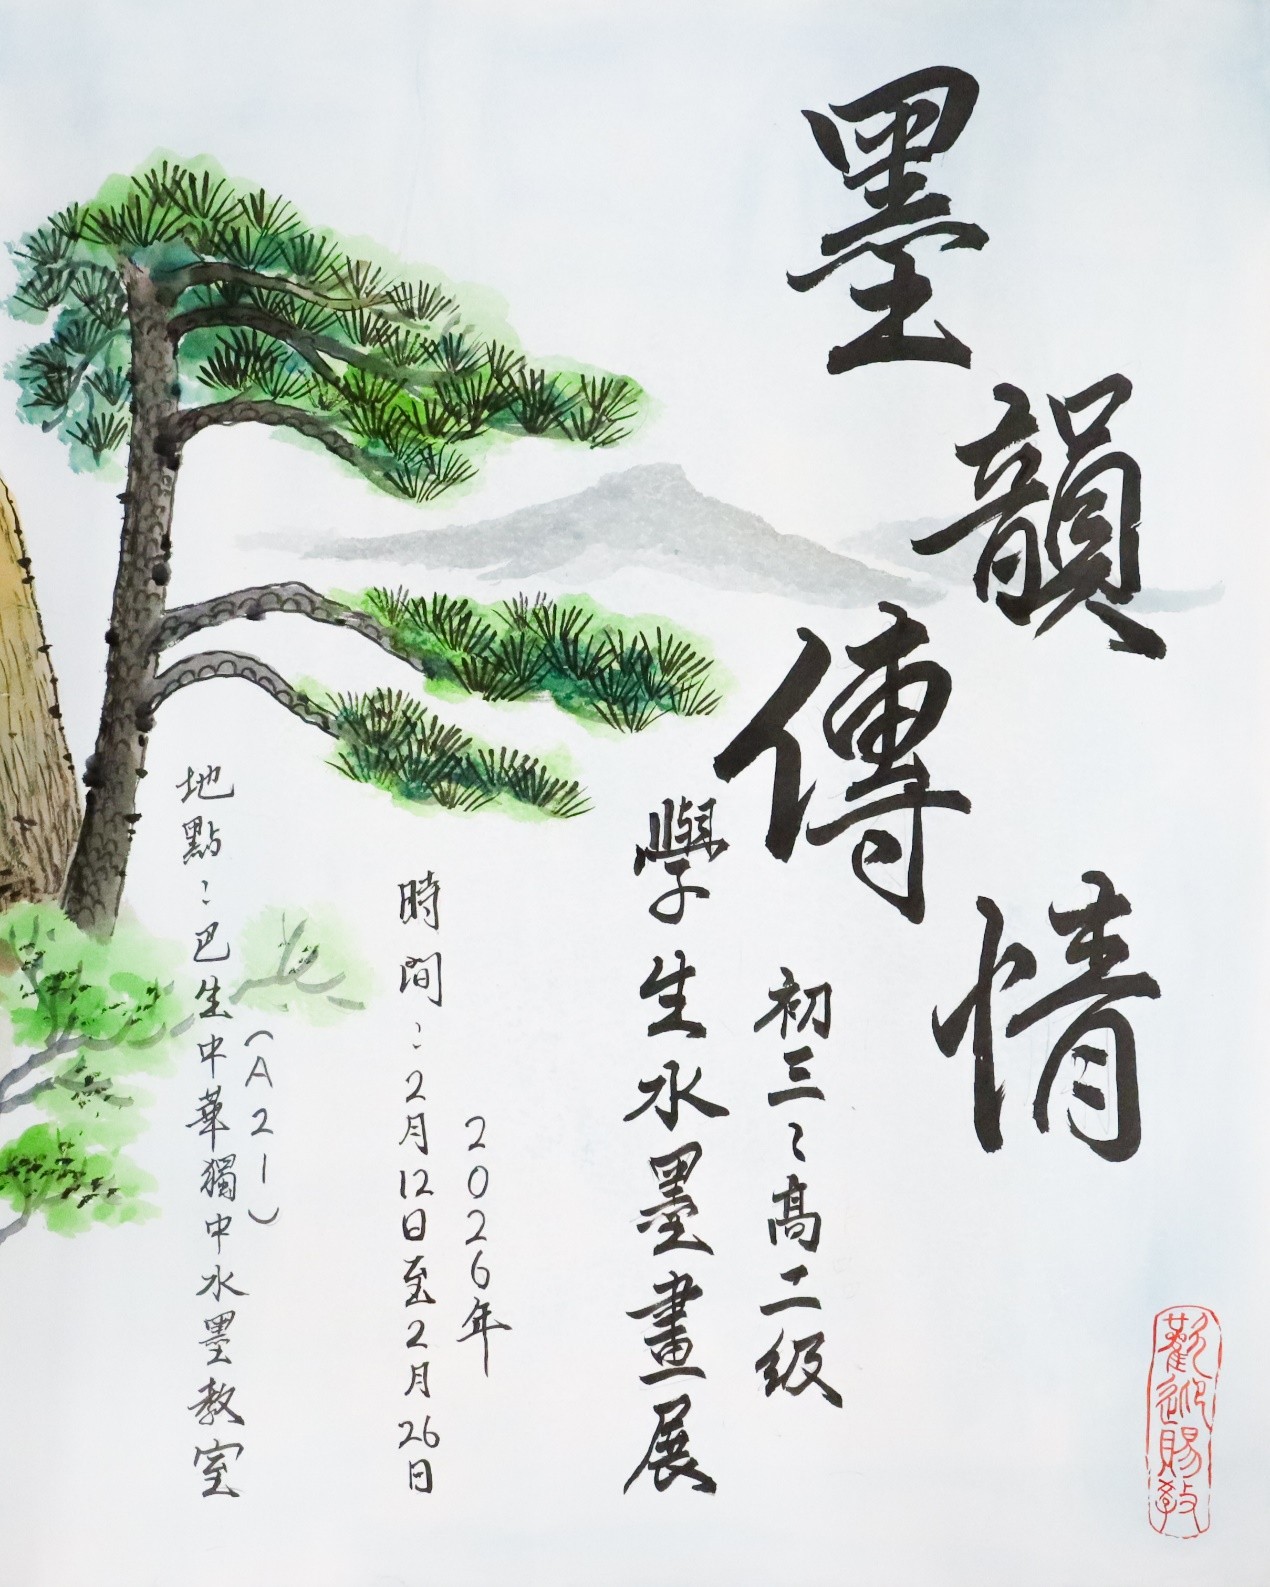 墨韻傳情
初三、高二級
學生水墨畫展
2026年
時間：2月12日至2月26日
(A21)
地點：巴生中華獨中水墨教室
歡迎賜教